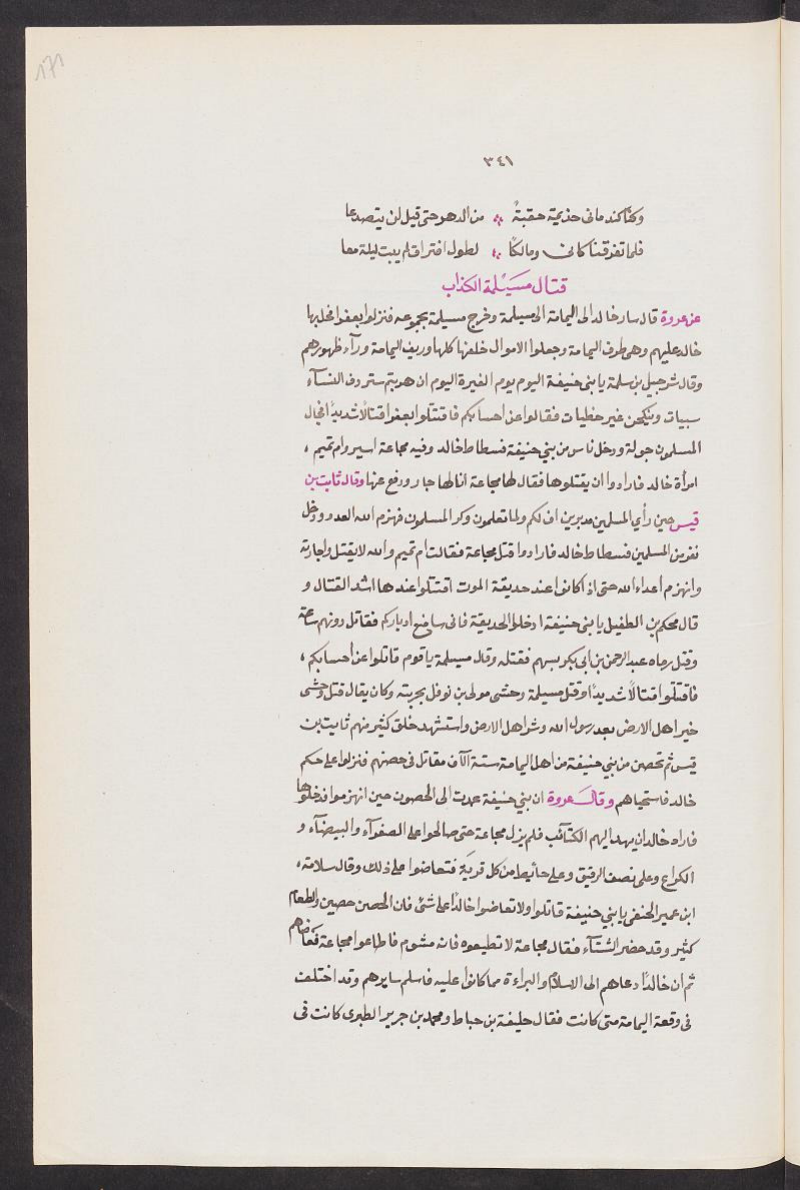 ١٧١
٣٤١
وكنا كندمانى جذيمة حقبةً ؞ من الدهر حتى قيل لن يتصدعا
فلما تفرقنا كانى ومالكًا ؞ لطول افتراق لم يبت ليلة معا
قتال مسيلمة الكذاب
عن عروة قال سار خالد الى اليمامة الى مسيلمة وخرج مسيلمة بجموعه فنزلوا بعفوا فحل بها
خالد عليهم وهى طرف اليمامة وجعلوا الاموال خلفها كلها وريف اليمامة ورآء ظهورهم
وقال شرحبيل بن سلمة يا بنى حنيفة اليوم يوم الغيرة اليوم ان هزمتم ستردف النسآء
سبيات وينكحن غير حظيات فقاتلوا عن احسابكم فاقتتلوا بعفوا قتالًا شديدًا فجال
المسلمون جولة ودخل ناس من بني حنيفة فسطاط خالد وفيه مجاعة اسير وام تميم ،
امرأة خالد فارادوا ان يقتلوها فقال لها مجاعة انا لها جار ودفع عنها وقال ثابت بن
قيس حين رأي المسلمين مدبرين اف لكم ولما تعملون وكر المسلمون فهزم الله العدو ودخل
نفر من المسلمين فسطاط خالد فارادوا قتل مجاعة فقالت ام تميم والله لا يقتل واجارته
وانهزم اعداء الله حتى اذا كانوا عند حديقة الموت اقتتلوا عندها اشد القتال و
قال محكم بن الطفيل يا بنى حنيفة ادخلوا الحديقة فانى سامنع ادباركم فقاتل دونهم ساعة
وقتل رماه عبد الرحمن بن ابى بكر بسهم فقتله وقال مسيلمة يا قوم قاتلوا عن احسابكم ،
فاقتتلوا قتالًا شديدًا وقتل مسيلمة وحشى مولى بن نوفل بحربته وكان يقال قتل وحشى
خير اهل الارض بعد رسول الله وشر اهل الارض واستشهد خلق كثير منهم ثابت بن
قيس ثم تحصن من بني حنيفة من اهل اليمامة ستة الآف مقاتل فى حصنهم فنزلوا على حكم
خالد فاستحياهم وقال عروة ان بني حنيفة عمدت الى الحصون حين انهزموا فدخلوها
فاراد خالد ان ينهد اليهم الكتآئب فلم يزل مجاعة حتى صالحوا على الصفرآء والبيضآء و
الكراع وعلى نصف الرقيق وعلى حائط من كل قرية فتقاضوا على ذلك وقال سلامة ،
ابن عمير الحنفى يا بني حنيفة قاتلوا ولا تقاضوا خالدًا على شئ فان الحصن حصين والطعام
كثير وقد حضر الشتآء فقال مجاعة لا تطيعوه فانه مشوم فاطاعوا مجاعة فقاضاهم
ثم ان خالدًا دعاهم الى الاسلام والبراءة مما كانوا عليه فاسلم سايرهم وقد اختلف
فى وقعة اليمامة متى كانت فقال خليفة بن خياط ومحمد بن جرير الطبرى كانت فى